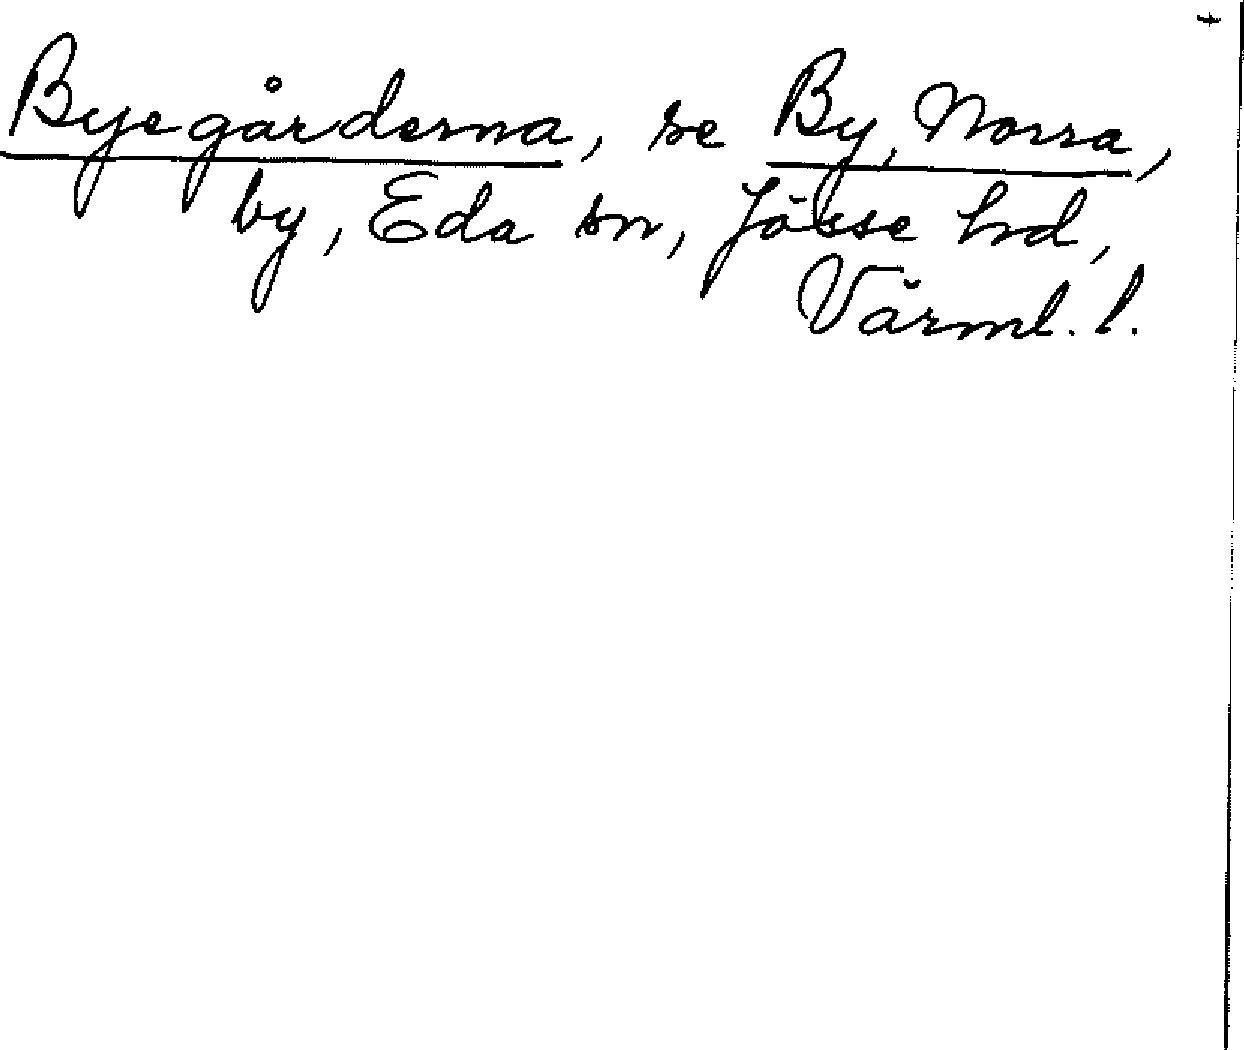 Byegårderna, se By, Norra,
by, Eda sn, Jösse hd,
Värml. l.